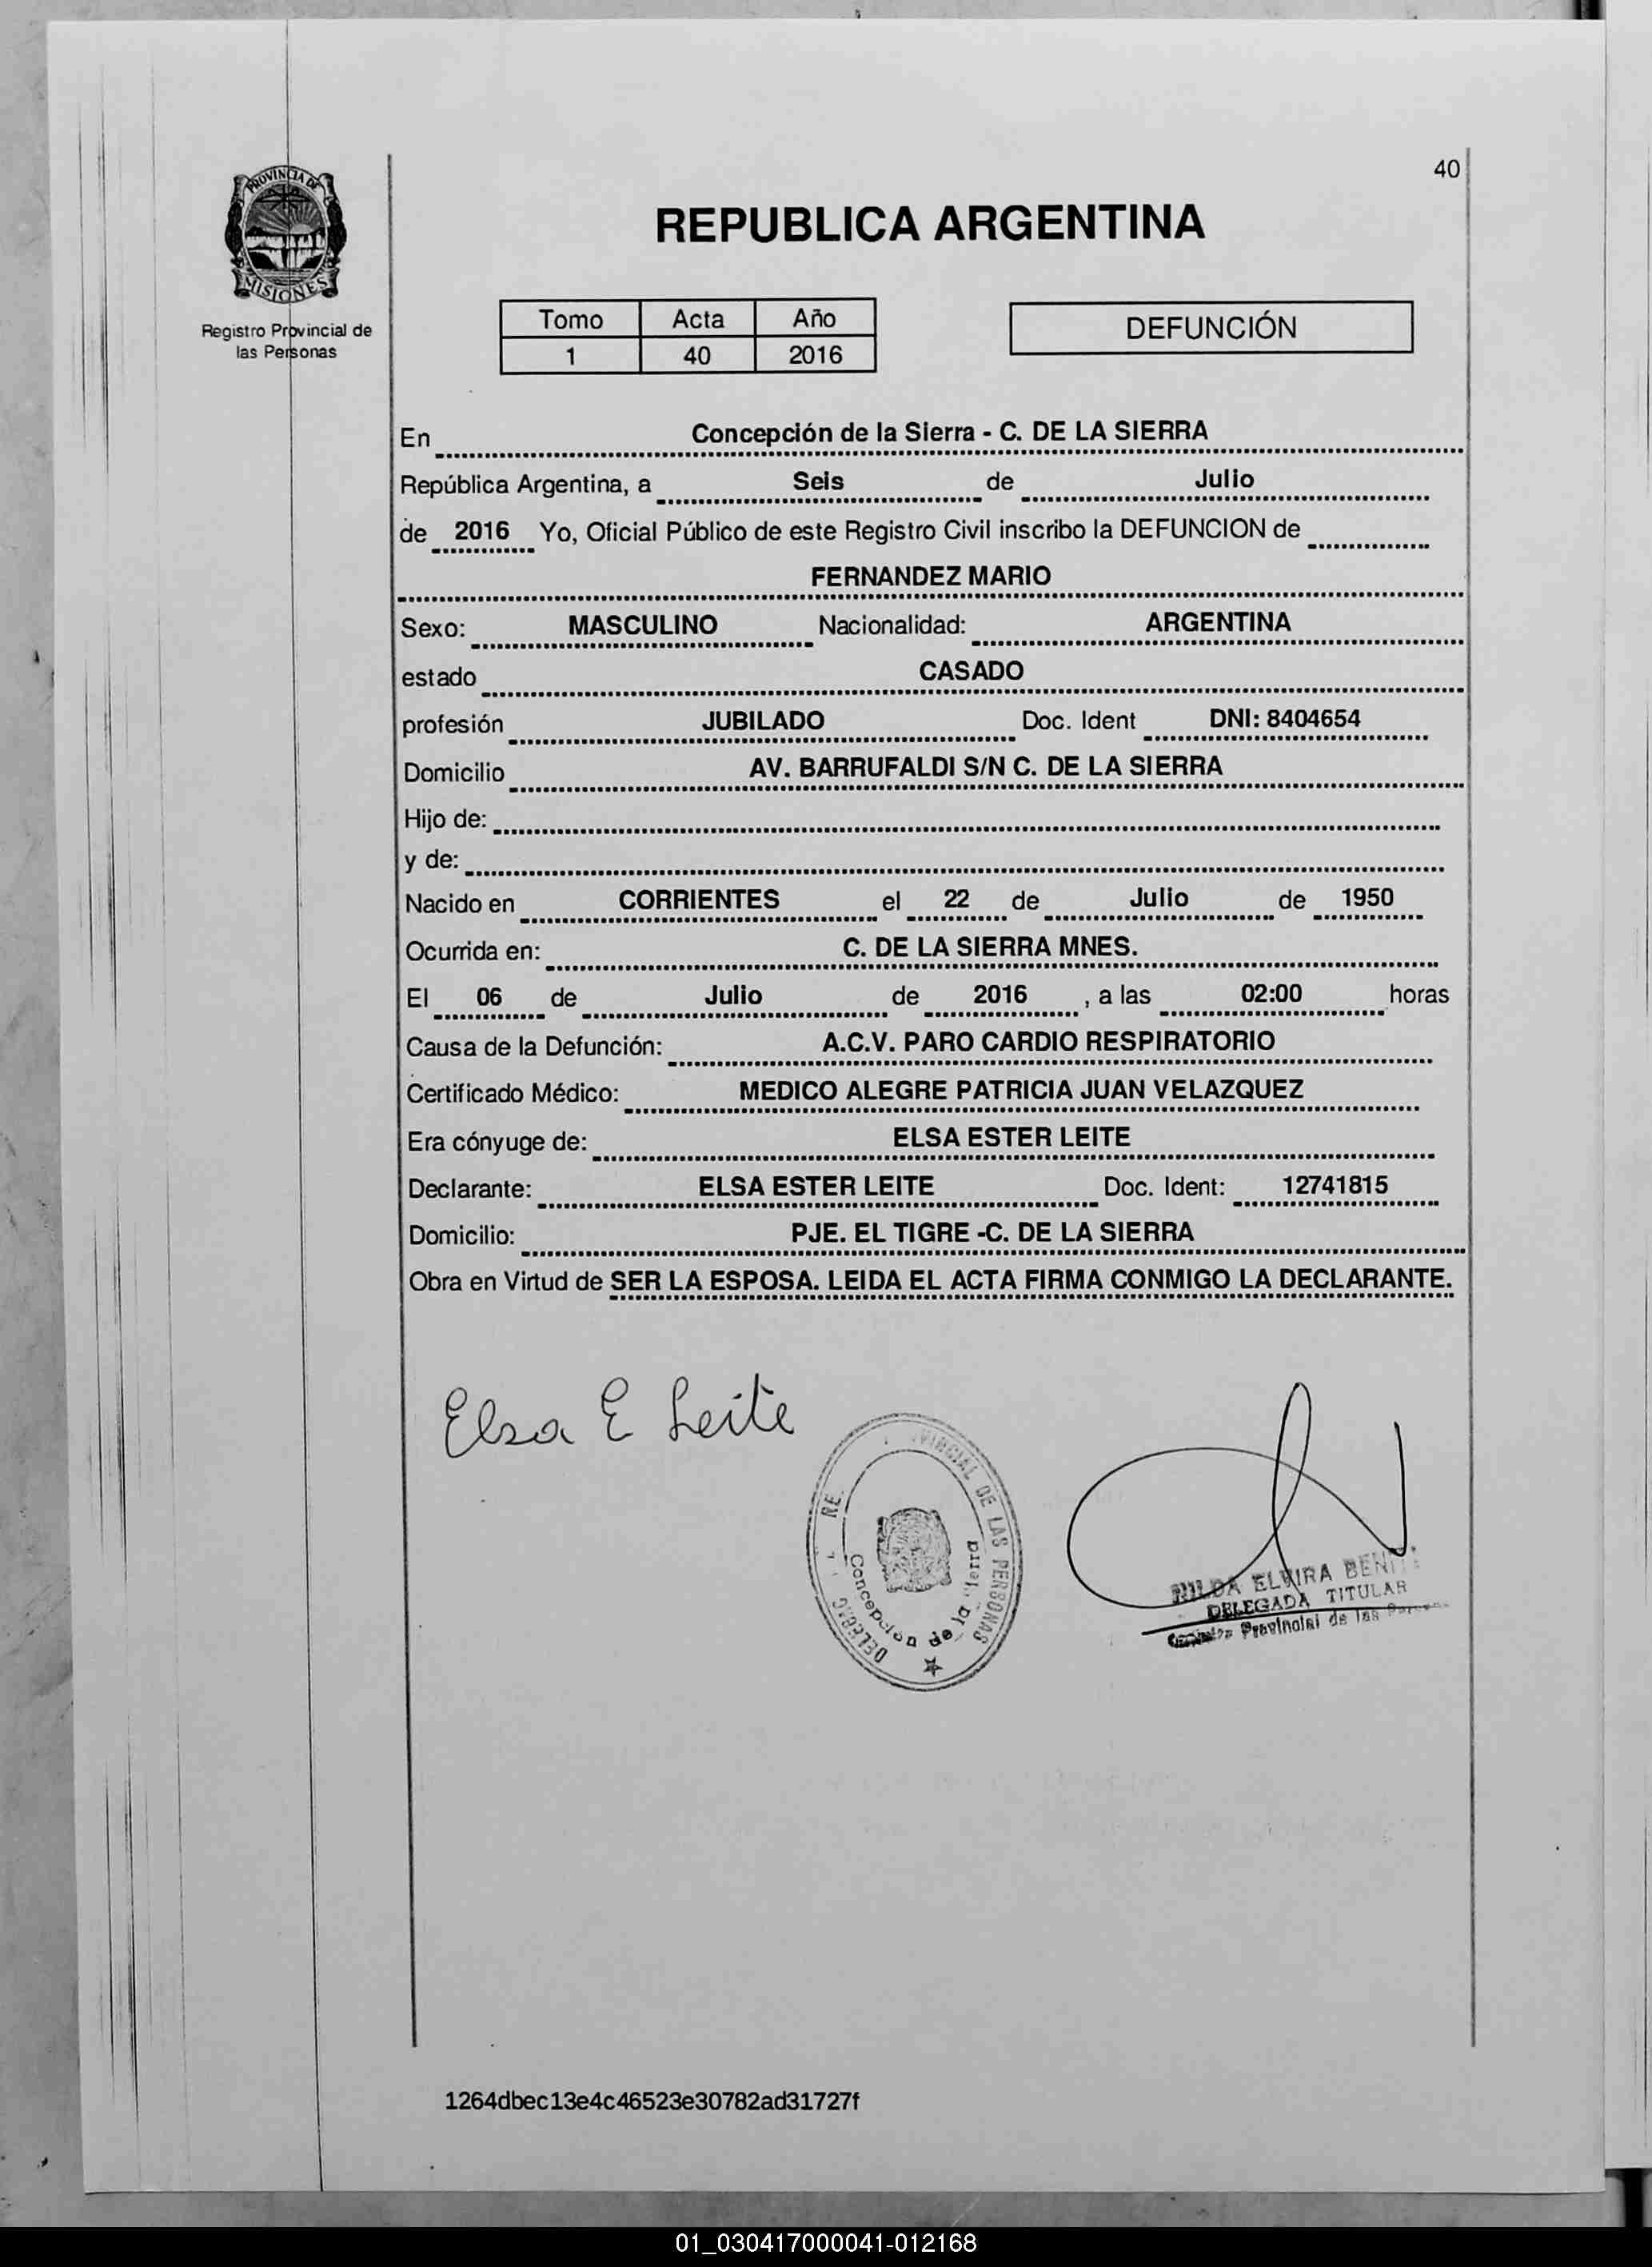 40
PROVINCIA DE
MISIONES
Registro Provincial de
las Personas
REPUBLICA ARGENTINA
Tomo Acta Año
1 40 2016
DEFUNCIÓN
En Concepción de la Sierra - C. DE LA SIERRA
República Argentina, a Seis de Julio
de 2016 Yo, Oficial Público de este Registro Civil inscribo la DEFUNCION de
FERNANDEZ MARIO
Sexo: MASCULINO Nacionalidad: ARGENTINA
estado CASADO
profesión JUBILADO Doc. Ident DNI: 8404654
Domicilio AV. BARRUFALDI S/N C. DE LA SIERRA
Hijo de:
y de:
Nacido en CORRIENTES el 22 de Julio de 1950
Ocurrida en: C. DE LA SIERRA MNES.
El 06 de Julio de 2016 , a las 02:00 horas
Causa de la Defunción: A.C.V. PARO CARDIO RESPIRATORIO
Certificado Médico: MEDICO ALEGRE PATRICIA JUAN VELAZQUEZ
Era cónyuge de: ELSA ESTER LEITE
Declarante: ELSA ESTER LEITE Doc. Ident: 12741815
Domicilio: PJE. EL TIGRE -C. DE LA SIERRA
Obra en Virtud de SER LA ESPOSA. LEIDA EL ACTA FIRMA CONMIGO LA DECLARANTE.
Elsa E Leite
DE LAS PERSONAS
Concepción de la
ELVIRA
DELEGADA TITULAR
Provincial de las
1264dbec13e4c46523e30782ad31727f
01_030417000041-012168